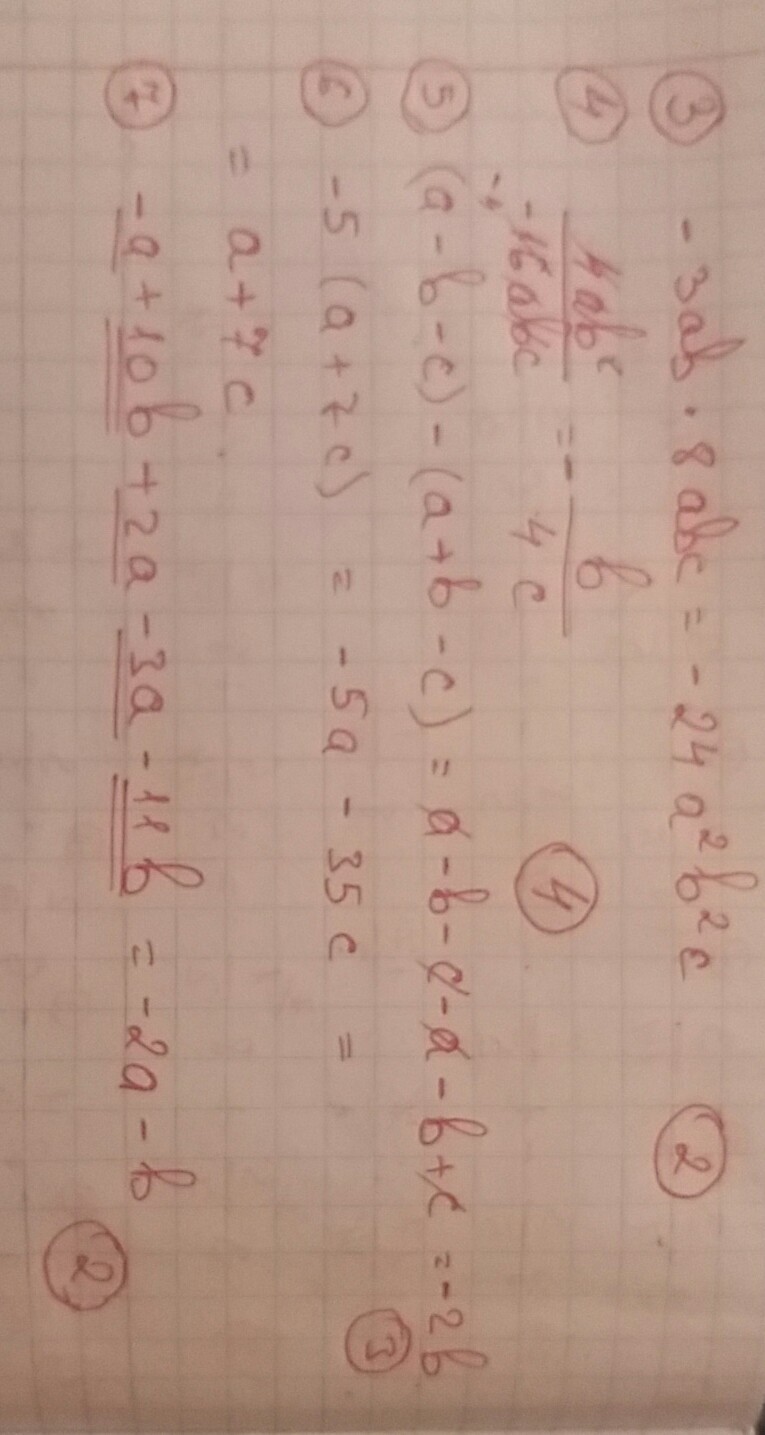 ③ -3ab · 8abc = -24a²b²c ②
④ 4ab² / -16abc = - b / 4c ④
-4
⑤ (a - b - c) - (a + b - c) = a - b - c - a - b + c = -2b ③
⑥ -5 (a + 7c) = -5a - 35c =
= a + 7c
⑦ -a + 10b + 2a - 3a - 11b = -2a - b ②